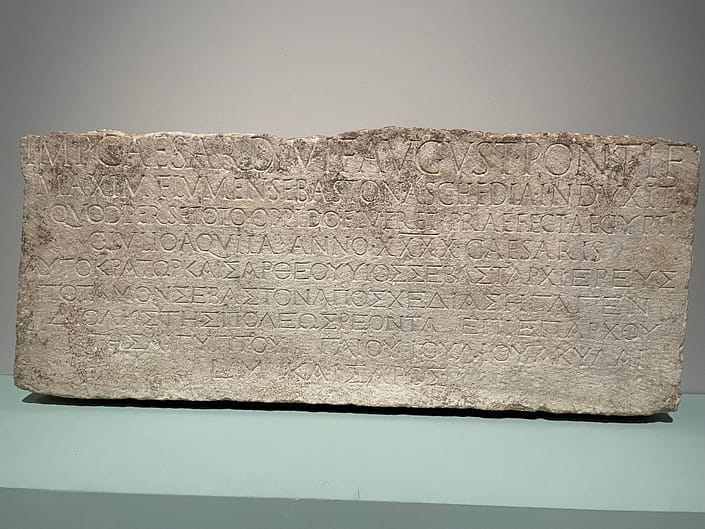 IMP CAESAR DIVI F AVGVST PONTIF
MAXIM FLVMEN SEBASTON A SCHEDIA INDVXIT
QVOD PER SE TOTO OPPIDO FLVERET PRAEFECT AEGYPTI
C IVLIO AQVILA ANNO XXXX CAESARIS
ΑΥΤΟΚΡΑΤΩΡ ΚΑΙΣΑΡ ΘΕΟΥ ΥΙΟΣ ΣΕΒΑΣΤ ΑΡΧΙΕΡΕΥΣ
ΠΟΤΑΜΟΝ ΣΕΒΑΣΤΟΝ ΑΠΟ ΣΧΕΔΙΑΣ ΗΓΑΓΕΝ
ΤΗΣ ΠΟΛΕΩΣ ΡΕΟΝΤΑ ΕΠΙ ΕΠΑΡΧΟΥ
ΤΗΣ ΑΙΓΥΠΤΟΥ ΓΑΙΟΥ ΙΟΥΛΙΟΥ ΑΚΥΛΑ
L Μ ΚΑΙΣΑΡΟΣ